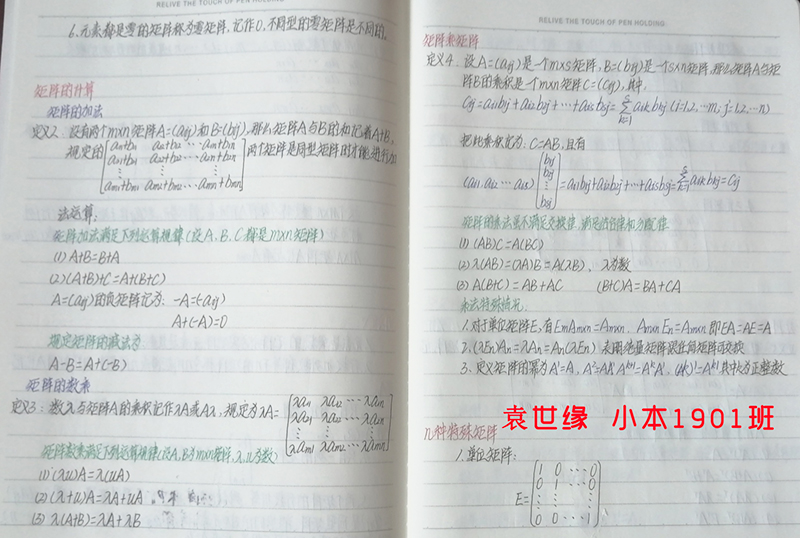 RELIVE THE TOUCH OF PEN HOLDING
6.元素都是零的矩阵称为零矩阵,记作O,不同型的零矩阵是不同的.
矩阵的计算
矩阵的加法
定义2:设有两个m×n矩阵A=(aij)和B=(bij),那么矩阵A与B的和记着A+B,
规定的
a11+b11 a12+b12 ··· a1n+b1n
a21+b21 a22+b22 ··· a2n+b2n
⋮ ⋮ ⋮
am1+bm1 am2+bm2 ··· amn+bmn
两个矩阵是同型矩阵时才能进行加
法运算.
矩阵加法满足下列运算规律(设A、B、C都是m×n矩阵)
(1) A+B=B+A
(2) (A+B)+C=A+(B+C)
A=(aij)的负矩阵记为: -A=(-aij)
A+(-A)=0
规定矩阵的减法为
A-B=A+(-B)
矩阵的数乘
定义3:数λ与矩阵A的乘积记作λA或Aλ,规定为λA=
λa11 λa12 ··· λa1n
λa21 λa22 ··· λa2n
⋮ ⋮ ⋮
λam1 λam2 ··· λamn
矩阵数乘满足下列运算规律(设A,B为m×n矩阵,λ,μ为数)
(1) (λμ)A=λ(μA)
(2) (λ+μ)A=λA+μA
(3) λ(A+B)=λA+λB
RELIVE THE TOUCH OF PEN HOLDING
矩阵乘矩阵
定义4. 设A=(aij)是一个m×s矩阵,B=(bij)是一个s×n矩阵,那么矩阵A与矩
阵B的乘积是一个m×n矩阵C=(Cij),其中,
Cij=ai1b1j+ai2b2j+···+aisbsj=Σaikbkj (i=1,2,···m; j=1,2,···n)
把此乘积记为:C=AB,且有
(ai1 ai2 ··· ais)
b1j
b2j
⋮
bsj
=ai1b1j+ai2b2j+···+aisbsj=Σaikbkj=Cij
矩阵的乘法虽不满足交换律,满足结合律和分配律
(1) (AB)C=A(BC)
(2) λ(AB)=(λA)B=A(λB), λ为数
(3) A(B+C)=AB+AC (B+C)A=BA+CA
乘法特殊情况:
1.对于单位矩阵E,有EmAmxn=Amxn, AmxnEn=Amxn 即EA=AE=A
2.(λEn)An=λAn=An(λEn) 表明纯量矩阵跟任何矩阵可交换
3.定义矩阵的幂为A¹=A, A²=A¹A¹, Aᵏ⁺¹=AᵏA¹, 其中k为正整数
袁世缘 小本1901班
几种特殊矩阵
1.单位矩阵:
E=
1 0 ··· 0
0 1 ··· 0
⋮ ⋮ ⋮
0 0 ··· 1